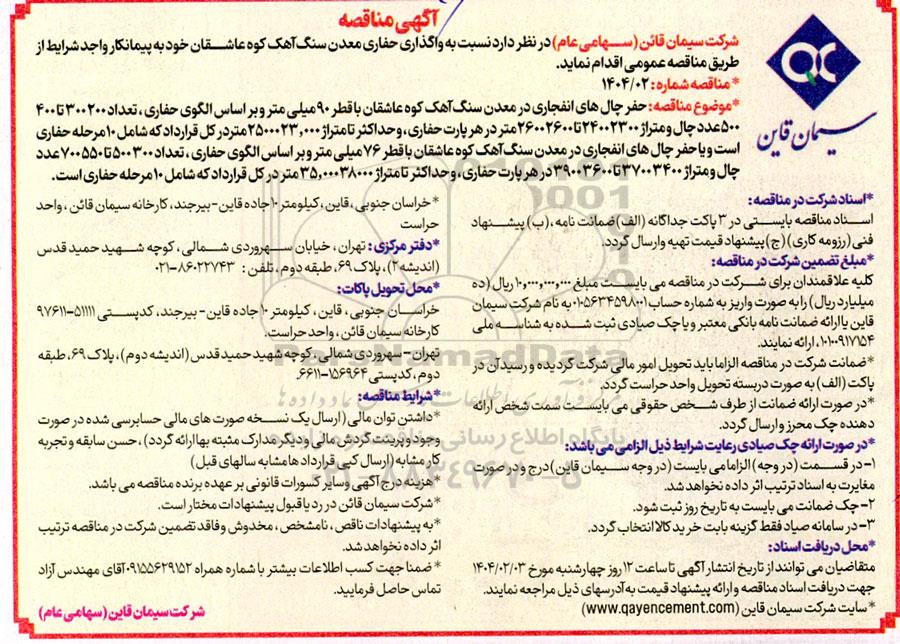 آگهی مناقصه
شرکت سیمان قائن (سهامی عام) در نظر دارد نسبت به واگذاری حفاری معدن سنگ آهک کوه عاشقان خود به پیمانکار واجد شرایط از
طریق مناقصه عمومی اقدام نماید.
* مناقصه شماره: ۱۴۰۴/۰۲
*موضوع مناقصه: حفر چال های انفجاری در معدن سنگ آهک کوه عاشقان با قطر ۹۰ میلی متر و بر اساس الگوی حفاری، تعداد ۲۰۰-۳۰۰ تا ۴۰۰
-۵۰۰ عدد چال و متراژ ۲۳۰۰-۲۴۰۰ تا ۲۶۰۰-۲۶۰۰ متر در هر پارت حفاری، و حداکثر تا متراژ ۲۳,۰۰۰-۲۵۰۰۰ متر در کل قرارداد که شامل ۱۰ مرحله حفاری
است و یا حفر چال های انفجاری در معدن سنگ آهک کوه عاشقان با قطر ۷۶ میلی متر و بر اساس الگوی حفاری، تعداد ۳۰۰-۵۰۰ تا ۵۵۰-۷۰۰ عدد
چال و متراژ ۳۴۰۰-۳۷۰۰ تا ۳۶۰۰-۳۹۰۰ در هر پارت حفاری، و حداکثر تا متراژ ۳۸۰۰۰-۳۵,۰۰۰ متر در کل قرارداد که شامل ۱۰ مرحله حفاری است.
سیمان قاین
*اسناد شرکت در مناقصه:
اسناد مناقصه بایستی در ۳ پاکت جداگانه (الف) ضمانت نامه، (ب) پیشنهاد
فنی (رزومه کاری) (ج) پیشنهاد قیمت تهیه و ارسال گردد.
*مبلغ تضمین شرکت در مناقصه:
کلیه علاقمندان برای شرکت در مناقصه می بایست مبلغ ۱۰,۰۰۰,۰۰۰,۰۰۰ ریال (ده
میلیارد ریال) را به صورت واریز به شماره حساب ۰۱۰۵۶۳۴۵۹۸۰۰۱ به نام شرکت سیمان
قاین یا ارائه ضمانت نامه بانکی معتبر و یا چک صیادی ثبت شده به شناسه ملی
۱۰۱۰۰۹۱۷۷۵۴، ارائه نمایند.
*ضمانت شرکت در مناقصه الزاما باید تحویل امور مالی شرکت گردیده و رسید آن در
پاکت (الف) به صورت دربسته تحویل واحد حراست گردد.
*در صورت ارائه ضمانت از طرف شخص حقوقی می بایست سمت شخص ارائه
دهنده چک محرز و ارسال گردد.
*در صورت ارائه چک صیادی رعایت شرایط ذیل الزامی می باشد:
۱- در قسمت (در وجه) الزاما می بایست (در وجه سیمان قاین) درج و در صورت
مغایرت به اسناد ترتیب اثر داده نخواهد شد.
۲- چک ضمانت می بایست به تاریخ روز ثبت شود.
۳- در سامانه صیاد فقط گزینه بابت خرید کالا انتخاب گردد.
*محل دریافت اسناد:
متقاضیان می توانند از تاریخ انتشار آگهی تا ساعت ۱۲ روز چهارشنبه مورخ ۱۴۰۴/۰۲/۰۳
جهت دریافت اسناد مناقصه و ارائه پیشنهاد قیمت به آدرسهای ذیل مراجعه نمایند.
*سایت شرکت سیمان قاین (www.qayencement.com)
*خراسان جنوبی، قاین، کیلومتر ۱۰ جاده قاین - بیرجند، کارخانه سیمان قائن، واحد
حراست
*دفتر مرکزی: تهران، خیابان سهروردی شمالی، کوچه شهید حمید قدس
(اندیشه ۲)، پلاک ۶۹، طبقه دوم، تلفن: ۸۶۰۲۲۷۴۳-۰۲۱
*محل تحویل پاکات:
خراسان جنوبی، قاین، کیلومتر ۱۰ جاده قاین - بیرجند، کدپستی ۵۱۱۱۱-۹۷۶۱۱
کارخانه سیمان قائن، واحد حراست.
تهران - سهروردی شمالی - کوچه شهید حمید قدس (اندیشه دوم)، پلاک ۶۹، طبقه
دوم، کدپستی ۱۵۶۹۶۴-۶۶۱۱.
*شرایط مناقصه:
*داشتن توان مالی (ارسال یک نسخه صورت های مالی حسابرسی شده در صورت
وجود و پرینت گردش مالی و دیگر مدارک مثبته بها ارائه گردد)، حسن سابقه و تجربه
کار مشابه (ارسال کپی قرارداد ها مشابه سالهای قبل)
*هزینه درج آگهی و سایر کسورات قانونی بر عهده برنده مناقصه می باشد.
*شرکت سیمان قائن در رد یا قبول پیشنهادات مختار است.
*به پیشنهادات ناقص، نامشخص، مخدوش و فاقد تضمین شرکت در مناقصه ترتیب
اثر داده نخواهد شد.
*ضمنا جهت کسب اطلاعات بیشتر با شماره همراه ۰۹۱۵۵۶۲۹۱۵۲ آقای مهندس آزاد
تماس حاصل فرمایید.
شرکت سیمان قاین (سهامی عام)